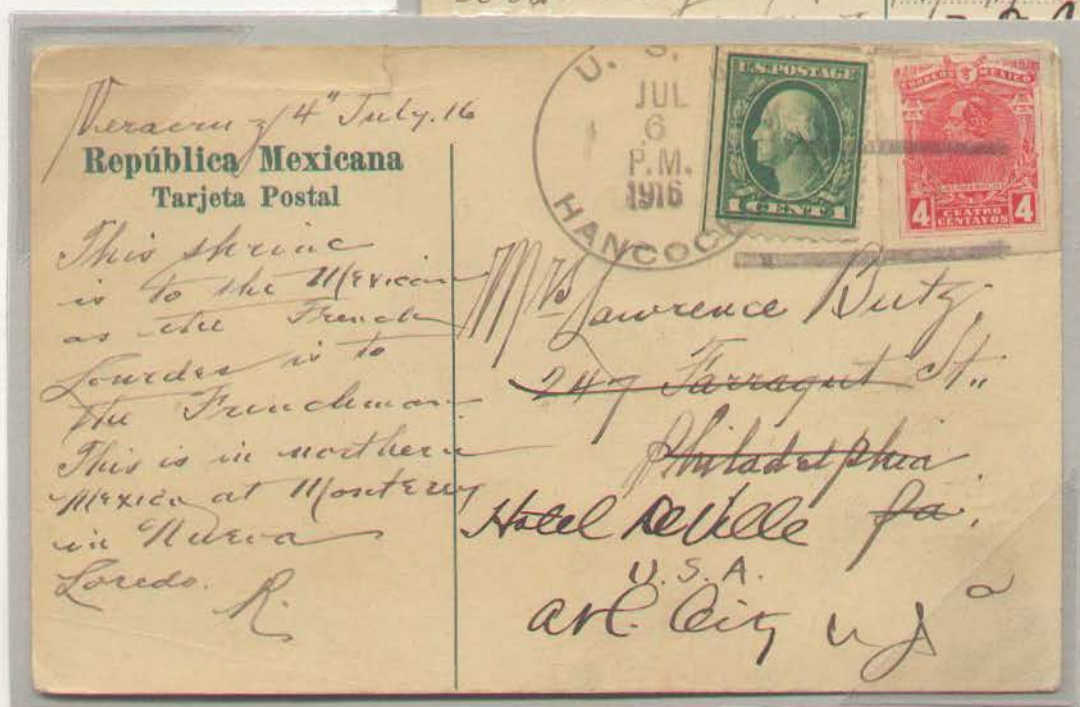 Veracruz 4" July. 16
República Mexicana
Tarjeta Postal
This shrine
is to the Mexican
as the French
Lourdes is to
the Frenchman.
This is in northern
Mexico at Monterey
in Nueva
Loredo.
R.
U. S.
JUL
6
P.M.
1916
HANCOCK
U.S. POSTAGE
1 CENT 1
CORREOS MEXICO
4 CUATRO CENTAVOS 4
Mrs Lawrence Butz,
247 Farragut St.,
Philadelphia
Hotel De Ville Pa.
U.S.A.
Atl. City N J